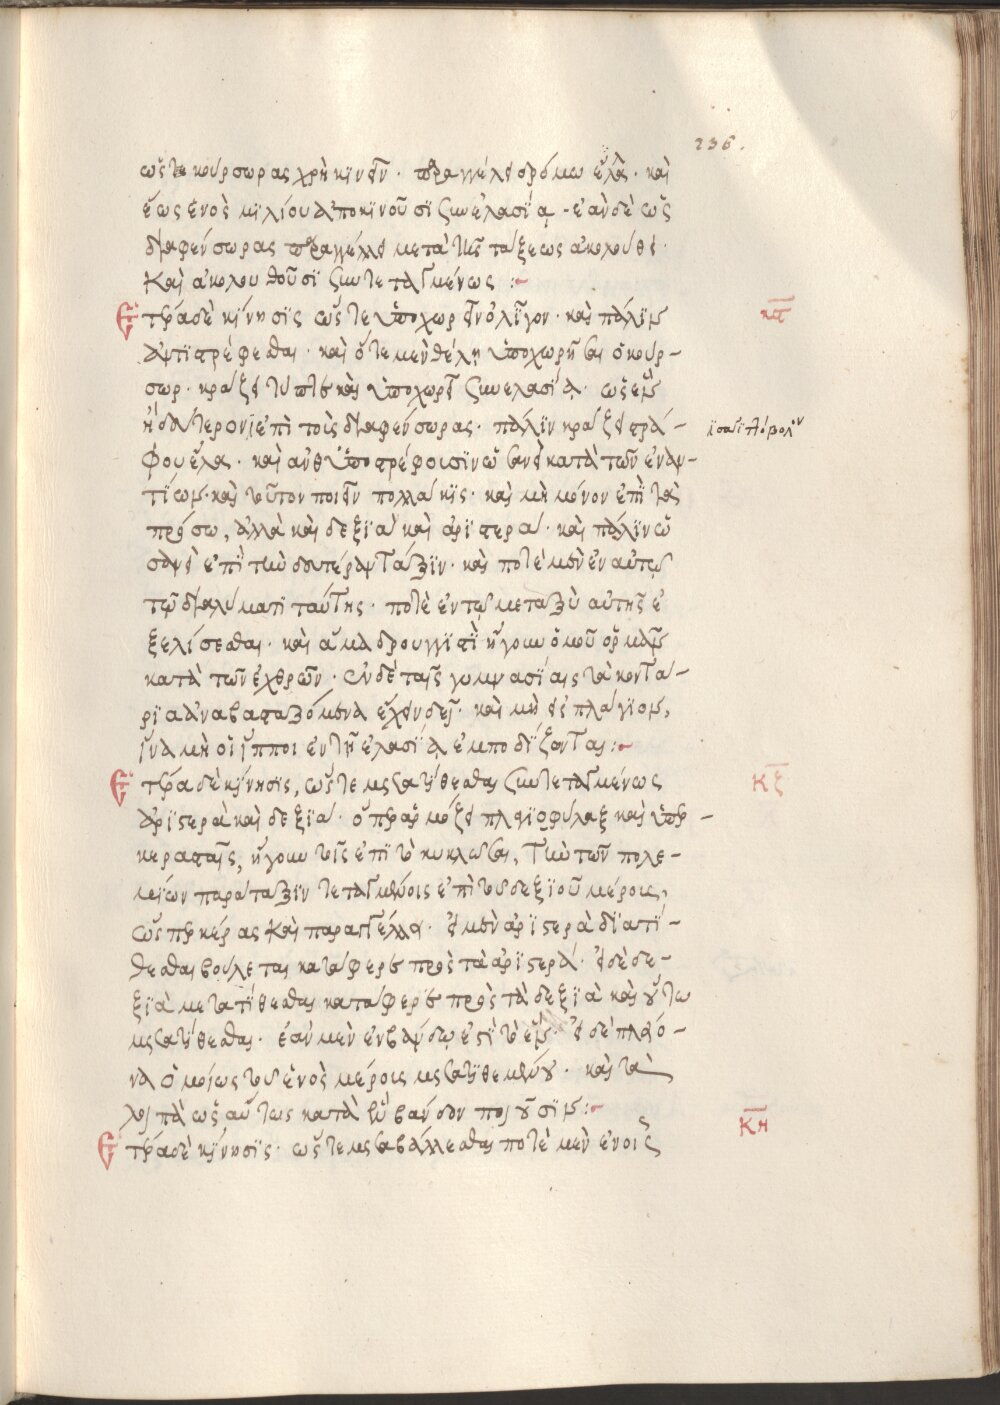 236.
ὡς τε κούρσωρας χρὴ κινεῖν · παραγγέλει δρόμω ἔλα · καὶ
ἕως ἑνὸς μιλίου ἀποκινοῦσι σὺν ἐλασία · ἐὰν δὲ ὡς
διαφένσωρας παραγγέλλει μετὰ τῆς τάξεως ἀκολούθει ·
καὶ ἀκολουθοῦσι σὺν τεταγμένως :~
Ἑτέρα δὲ κίνησις ὥς τε ὑποχωρεῖν ὀλίγον · καὶ πάλιν
κϛ
ἀντιστρέφεσθαι · καὶ ὅτε μὲν θέλη ὑποχωρῆσαι ὁ κούρ-
σωρ · κράζει καὶ ὑποχωρεῖ σὺν ἐλασία · ὡς εἷς
ἢ δεύτερον ἐπὶ τοὺς διαφένσωρας · πάλιν κράζει στρά-
φου ἔλα · καὶ ἀνθυποστρέφουσιν ὡσανεὶ κατὰ τῶν ἐναν-
τίων · καὶ τοῦτον ποιεῖν πολλάκις · καὶ μὴ μόνον ἐπὶ τὰ
πρόσω, ἀλλὰ καὶ δεξιὰ καὶ ἀριστερὰ · καὶ πάλιν ὡ
σανεὶ ἐπὶ τὴν δευτέραν τάξιν · καὶ ποτὲ μὲν ἐν αὐτῷ
τῷ διαλύματι ταύτης · ποτὲ ἐν τῷ μεταξὺ αὐτῆς ἐ
ξελίσεσθαι · καὶ ἅμα δρουγγιστὶ ἤγουν ὁμοῦ ὁρμᾶν
κατὰ τῶν ἐχθρῶν · ἐν δὲ ταῖς γυμνασίαις τὰ κοντά-
ρια ἀναβασταζόμενα ἔχειν δεῖ · καὶ μὴ εἰς πλάγιον,
ἵνα μὴ οἱ ἵπποι ἐν τῇ ἐλασία ἐμποδίζονται :~
Ἑτέρα δὲ κίνησις, ὥς τε μετατίθεσθαι σὺν τεταγμένως
κζ
ἀριστερὰ καὶ δεξιὰ · ὅπερ ἁρμόζει πλαγιοφύλαξ καὶ ὑπερ-
κερασταῖς, ἤγουν τοῖς ἐπὶ τὸ κυκλῶσαι, τὴν τῶν πολε-
μίων παράταξιν τεταγμένοις ἐπὶ τοῦ δεξιοῦ μέρους,
ὡς ὑπερκέρας καὶ παραγγέλλει · εἰ μὲν ἀριστερὰ διατί-
θεσθαι βούλεται κατάφερε πρὸς τὰ ἀριστερά · εἰ δὲ δε-
ξιὰ μετατίθεσθαι κατάφερε πρὸς τὰ δεξιὰ καὶ οὕτω
μετατίθεσθαι · ἐὰν μὲν ἐν βάνδω ἐστὶ τὸ ἓν · εἰ δὲ πλείο-
να ὁμοίως τοῦ ἑνὸς μέρους μετατιθεμένου · καὶ τὰ
λοιπὰ ὡσαύτως κατὰ βάνδον ποιοῦσιν :~
Ἑτέρα δὲ κίνησις · ὥς τε μεταβάλλεσθαι ποτὲ μὲν ἑνοις
κη